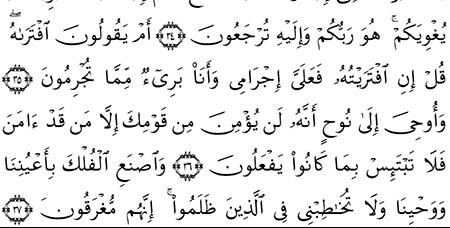 يُغْوِيَكُمْ ۚ هُوَ رَبُّكُمْ وَإِلَيْهِ تُرْجَعُونَ ﴿٣٤﴾ أَمْ يَقُولُونَ ٱفْتَرَىٰهُ ۖ
قُلْ إِنِ ٱفْتَرَيْتُهُۥ فَعَلَىَّ إِجْرَامِى وَأَنَا۠ بَرِىٓءٌ مِّمَّا تُجْرِمُونَ ﴿٣٥﴾
وَأُوحِىَ إِلَىٰ نُوحٍ أَنَّهُۥ لَن يُؤْمِنَ مِن قَوْمِكَ إِلَّا مَن قَدْ ءَامَنَ
فَلَا تَبْتَئِسْ بِمَا كَانُوا۟ يَفْعَلُونَ ﴿٣٦﴾ وَٱصْنَعِ ٱلْفُلْكَ بِأَعْيُنِنَا
وَوَحْيِنَا وَلَا تُخَٰطِبْنِى فِى ٱلَّذِينَ ظَلَمُوٓا۟ ۚ إِنَّهُم مُّغْرَقُونَ ﴿٣٧﴾